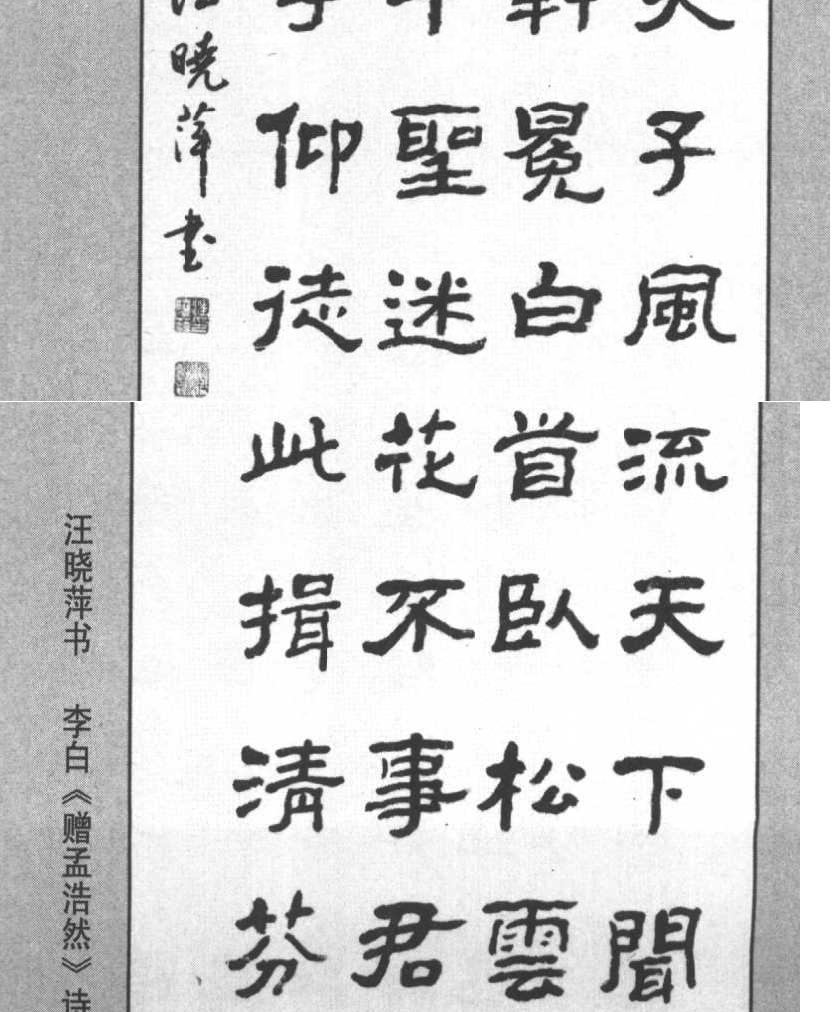 子風流天下聞
冕白首臥松雲
聖迷花不事君
仰徒此揖清芬
曉萍書
汪晓萍书 李白《赠孟浩然》诗